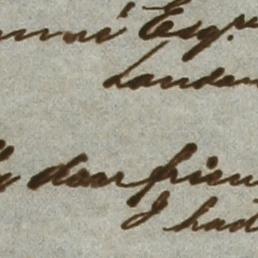 Esqre
London
dear frien
I had